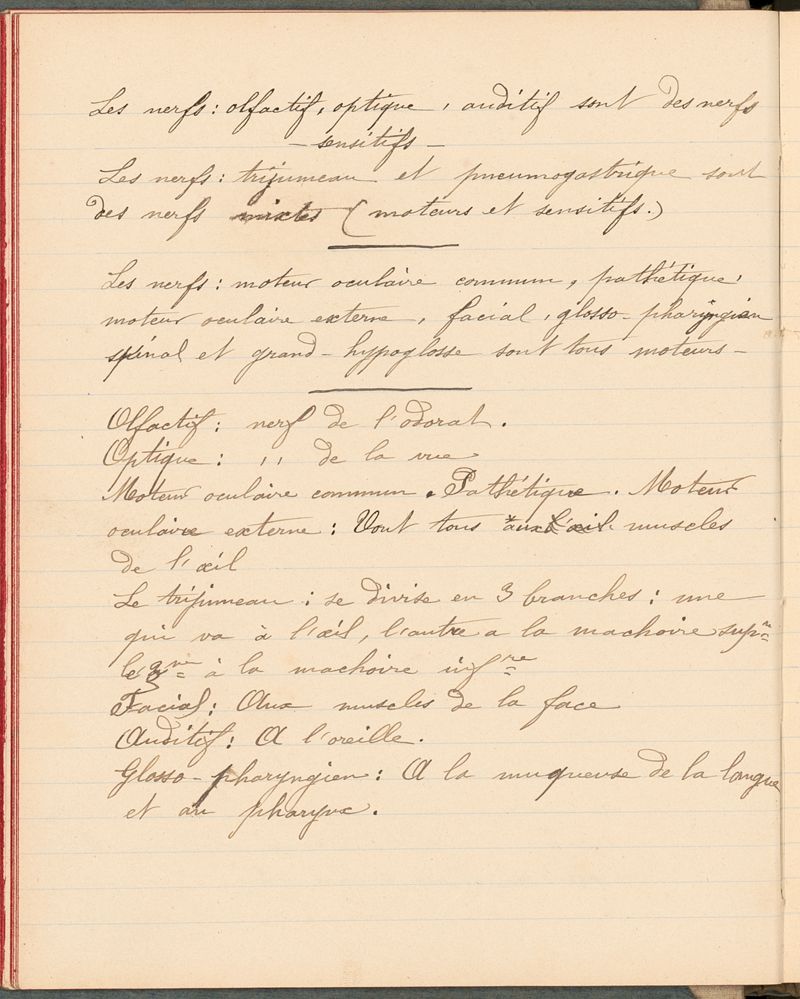 Les nerfs : olfactif, optique, auditif sont des nerfs
- sensitifs -
Les nerfs : trijumeau et pneumogastrique sont
des nerfs mixtes (moteurs et sensitifs.)
Les nerfs : moteur oculaire commun, pathétique,
moteur oculaire externe, facial, glosso-pharyngien
spinal et grand-hypoglosse sont tous moteurs -
Olfactif : nerf de l'odorat.
Optique : ,, de la vue
Moteur oculaire commun. Pathétique. Moteur
oculaire externe : Vont tous aux muscles
de l'œil
Le trijumeau : se divise en 3 branches : une
qui va à l'œil, l'autre a la machoire supre
le 3me à la machoire infre
Facial : Aux muscles de la face
Auditif : A l'oreille.
Glosso-pharyngien : A la muqueuse de la langue
et au pharynx.